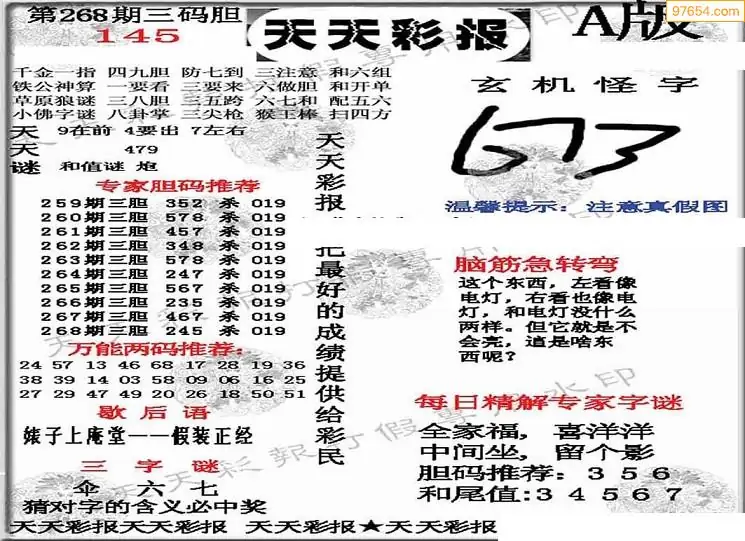 第268期三码胆
145
天天彩报
A版
97654.com
千金一指 四九胆 防七到 三注意 和六组
铁公神算 一要看 三要来 六做胆 和开单
草原狼谜 三八胆 三五跨 六七和 配五六
小佛字谜 八卦掌 三尖枪 猴王棒 扫四方
天 9在前 4要出 7左右
天 479
谜 和值谜 炮
专家胆码推荐
259期三胆 352 杀 019
260期三胆 578 杀 019
261期三胆 457 杀 019
262期三胆 348 杀 019
263期三胆 578 杀 019
264期三胆 247 杀 019
265期三胆 567 杀 019
266期三胆 235 杀 019
267期三胆 467 杀 019
268期三胆 245 杀 019
万能两码推荐:
24 57 13 46 68 17 28 19 36
38 39 14 03 58 09 06 16 25
27 29 47 49 20 26 18 50 51
歇后语
婊子上庵堂——假装正经
三字谜
伞 六 七
猜对字的含义必中奖
天天彩报
把最好的成绩提供给彩民
玄机怪字
673
温馨提示: 注意真假图
脑筋急转弯
这个东西，左看像
电灯，右看也像电
灯，和电灯没什么
两样。但它就是不
会亮，這是啥东
西呢?
每日精解专家字谜
全家福，喜洋洋
中间坐，留个影
胆码推荐: 3 5 6
和尾值:3 4 5 6 7
天天彩报天天彩报 天天彩报★天天彩报